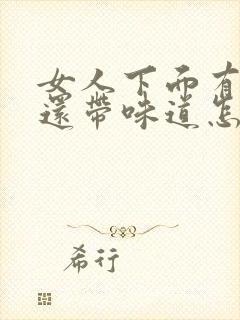 女人下面有
還帶味道怎
希行